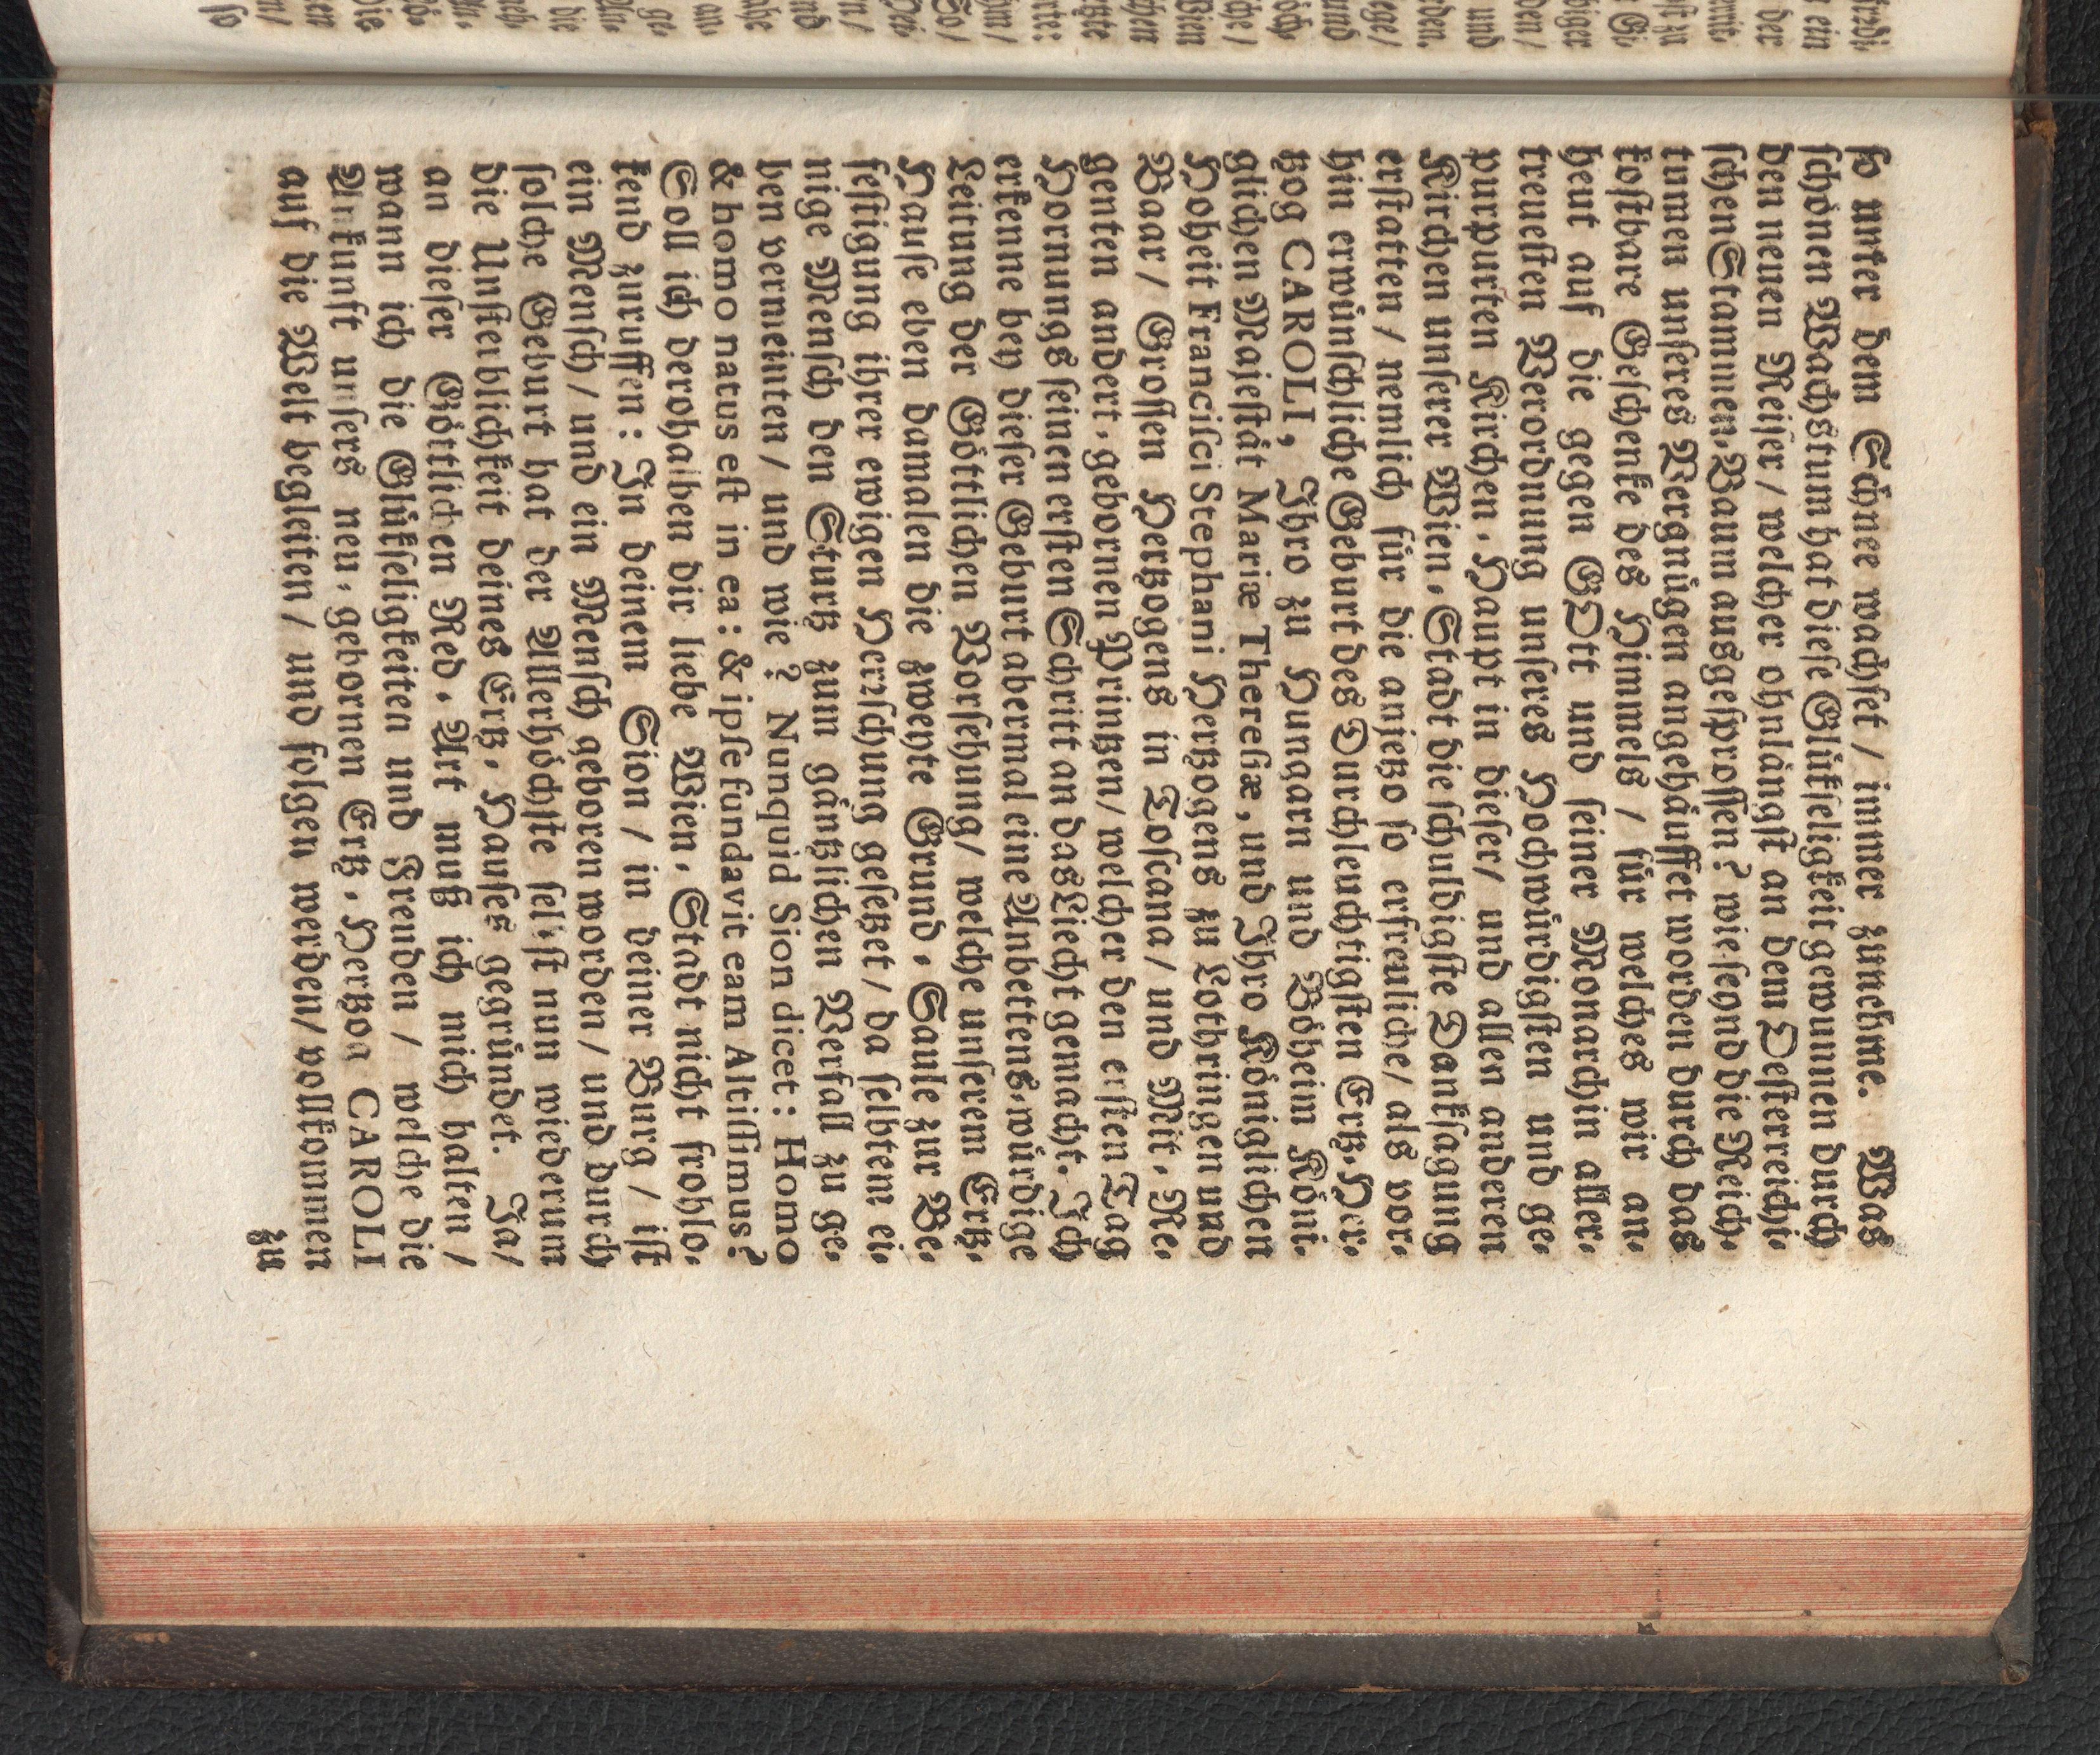 so unter dem Schönee wachset / immer zunehme. Was
schönen Wachstum hat diese Glükseligkeit gewunnen durch
den neuen Reiser / welcher ohnlängst an dem Oesterreichi-
schen Stammen-Baum ausgesprossen? wie seynd die Reich-
tumen unseres Vergnügen angehäuffet worden durch das
kostbare Geschenke des Himmels / für welches wir an-
heut auf die gegen GOtt und seiner Monarchin aller-
treuesten Verordnung unseres Hochwürdigsten und ge-
purpurten Kirchen-Haupt in dieser / und allen anderen
Kirchen unserer Wien-Stadt die schuldigste Danksagung
erstatten / nemlich für die anjetzo so erfreuliche / als vor-
hin erwünschliche Geburt des Durchleuchtigsten Ertz-Her-
zog CAROLI, Ihro zu Hungarn und Böheim Köni-
glichen Majestät Mariæ Theresiæ, und Ihro Königlichen
Hoheit Francisci Stephani Hertzogens zu Lothringen und
Baar / Grossen Hertzogens in Toscana / und Mit-Re-
genten andert-gebornen Printzen / welcher den ersten Tag
Hornungs seinen ersten Schritt an das Liecht gemacht. Ich
erkenne bey dieser Geburt abermal eine Anbettens-würdige
Leitung der Göttlichen Vorsehung / welche unserem Ertz-
Hause eben damalen die zweyte Grund-Saule zur Be-
festigung ihrer ewigen Herrschung gesetzet / da selbtem ei-
nige Mensch den Sturtz zum gäntzlichen Verfall zu ge-
ben vermeinten / und wie? Nunquid Sion dicet: Homo
& homo natus est in ea: & ipse fundavit eam Altissimus?
Soll ich derohalben dir liebe Wien-Stadt nicht frohlo-
kend zuruffen: In deinem Sion / in deiner Burg / ist
ein Mensch / und ein Mensch geboren worden / und durch
solche Geburt hat der Allerhöchste selbst nun wiederum
die Unsterblichkeit deines Ertz-Hauses gegründet. Ja /
an dieser Göttlichen Red-Art muß ich mich halten /
wann ich die Glükseligkeiten und Freuden / welche die
Ankunft unsers neu-gebornen Ertz-Hertzog CAROLI
auf die Welt begleiten / und folgen werden / vollkommen
zu